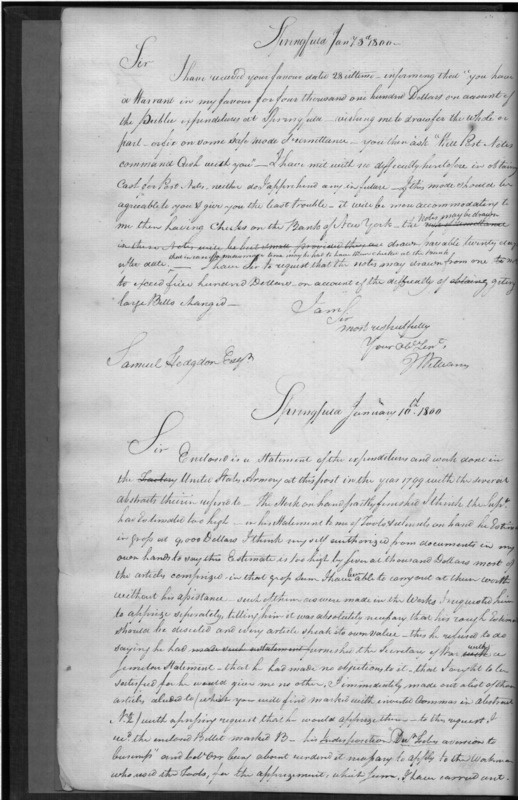 Springfield Jany 3rd 1800
Sir
I have received your favour dated 28 ultimo - informing that "you have
a Warrant in my favour for four thousand one hundred Dollars on account of
the Public expenditures at Springfield - wishing me to transfer the whole or
part - order on some safe mode of remittance - you then ask "Will Post Notes
command Cash with you" - I have met with no difficulty heretofore in obtaing
Cash for Post Notes, neither do I apprehend any in future - If this mode should be
agreeable to you & give you the least trouble - it will be more accommodating to
me then having Checks on the Bank of New York - the Notes may be drawn
in there Notes will be but small provided they are drawn payable twenty days
after date, - I have Sir to request that the notes may drawn from one
to exceed five hundred Dollars on account of the difficulty of obtaing geting
large Bills changed -
I am
Sir
most respectfully
Your Obt Servt
J Williams
Samuel Hodgdon Esqr
Springfield January 10th 1800
Sir Enclosed is a Statement of the expenditures and work done in
the Factory United States Armory at this post in the year 1799 with the several
abstracts therein refered to - The Stock on hand partly finished I think the Supt
has Estimated too high - in his Statement to me of Tools & utensils on hand he Estimates
in gross at 9,000 Dollars I think my self authorized from documents in my
own hands to say this Estimate is too high by several thousand Dollars most of
the articles comprized in that gross sum I have been able to carry out at their worth
without his assistance such of them as were made in the Works I requested him
to apprize seperately, telling him it was absolutely necessary that his rough Estimate
should be disected and every article speak its own value - this he refused to do
saying he had made such a statement furnished the Secretary of War with a
similar Statement - that he had made no objections to it, that I ought to be
satisfied for he would give me no other, I immediately made out a list of those
articles aluded to (which you will find marked with inverted Commas in abstract
) with a pressing request that he would apprize them - to this request I
recd the enclosed Billet marked B - his Indisposition Dr Lesly aversion to
business and Col Orr being about rendered it necessary to apply to the Workmen
who used the Tools, for the apprizement, which sums, I have carried out.